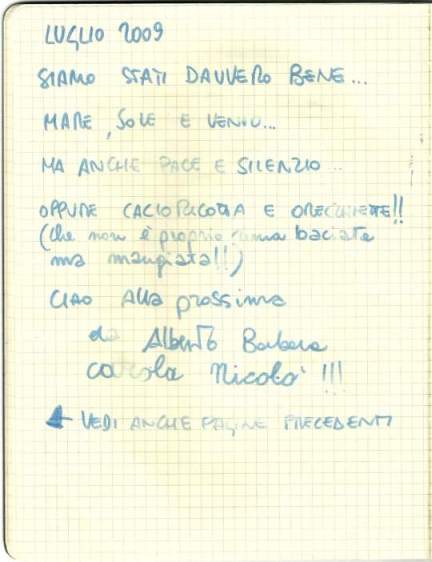 LUGLIO 2009
SIAMO STATI DAVVERO BENE...
MARE, SOLE E VENTO...
MA ANCHE PACE E SILENZIO...
OPPURE CACIORICOTTA E ORECCHIETTE!!
(che non è proprio una baciata
ma mangiata!!)
CIAO Alla prossima
da Alberto Barbara
carola Nicolò !!!
← VEDI ANCHE PAGINE PRECEDENTI